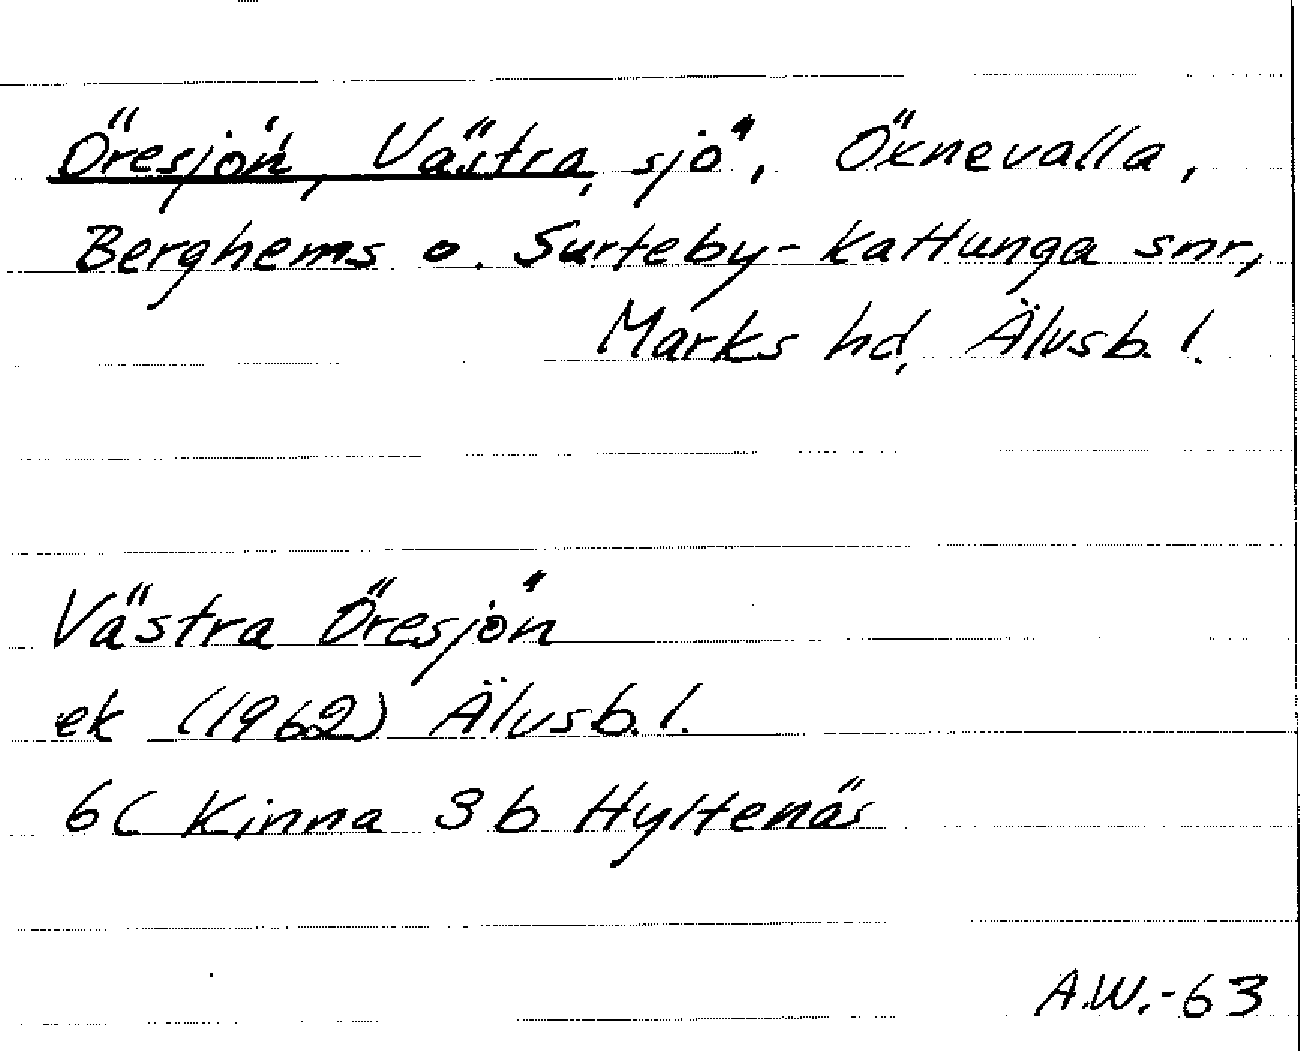 Öresjön, Västra, sjö, Öxnevalla,
Berghems o. Surteby-Kattunga snr,
Marks hd, Älvsb. l.
Västra Öresjön
ek (1962) Älvsb. l.
6C Kinna 3b Hyltenäs
A.W.-63